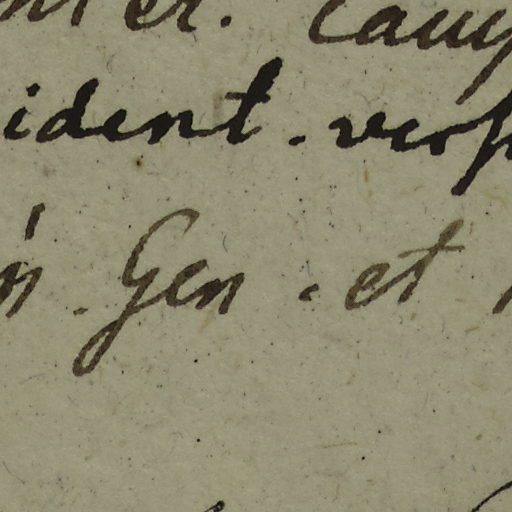 er. Camp
ident. verp
n. Gen. et